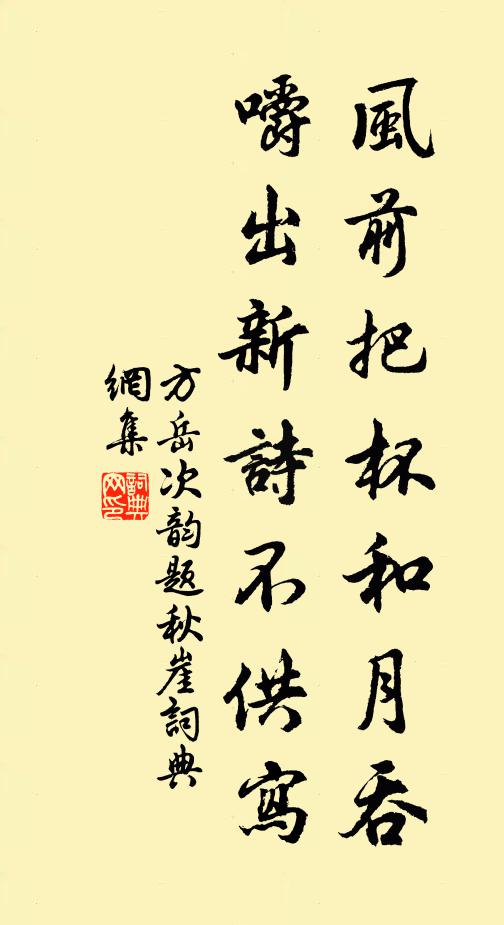 風前把杯和月吞
嚼出新詩不供寫
方岳次韵题秋崖詞典
網集
詞典網印